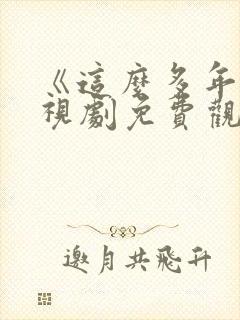 《這麼多年
視劇免費觀
邀月共飛升